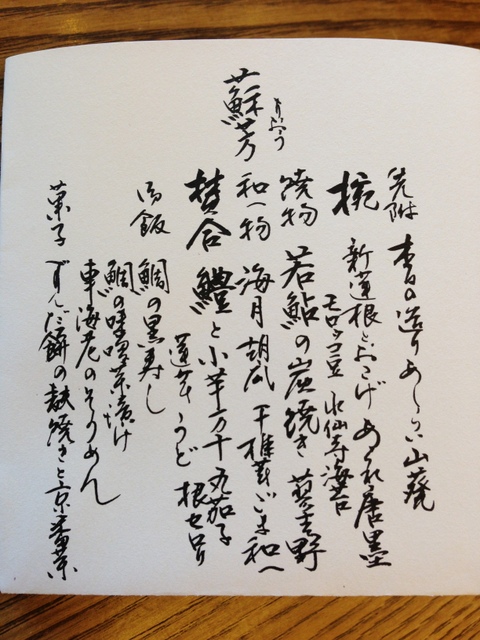 蘇芳
すおう
先附 本日の造り あしらい 山葵
椀 新蓮根とおこげ あられ唐墨
モロッコ豆 水仙寺海苔
焼物 若鮎の炭焼き 蓼吉野
和へ物 海月 胡瓜 干椎茸 ごま和へ
焚合 鱧と小芋 万十 丸茄子
蓮芋 うど 根セロリ
御飯 鯛の黒寿し
鯛の味噌茶漬け
車海老のそうめん
菓子 ずんだ餅の麸焼きと京番茶